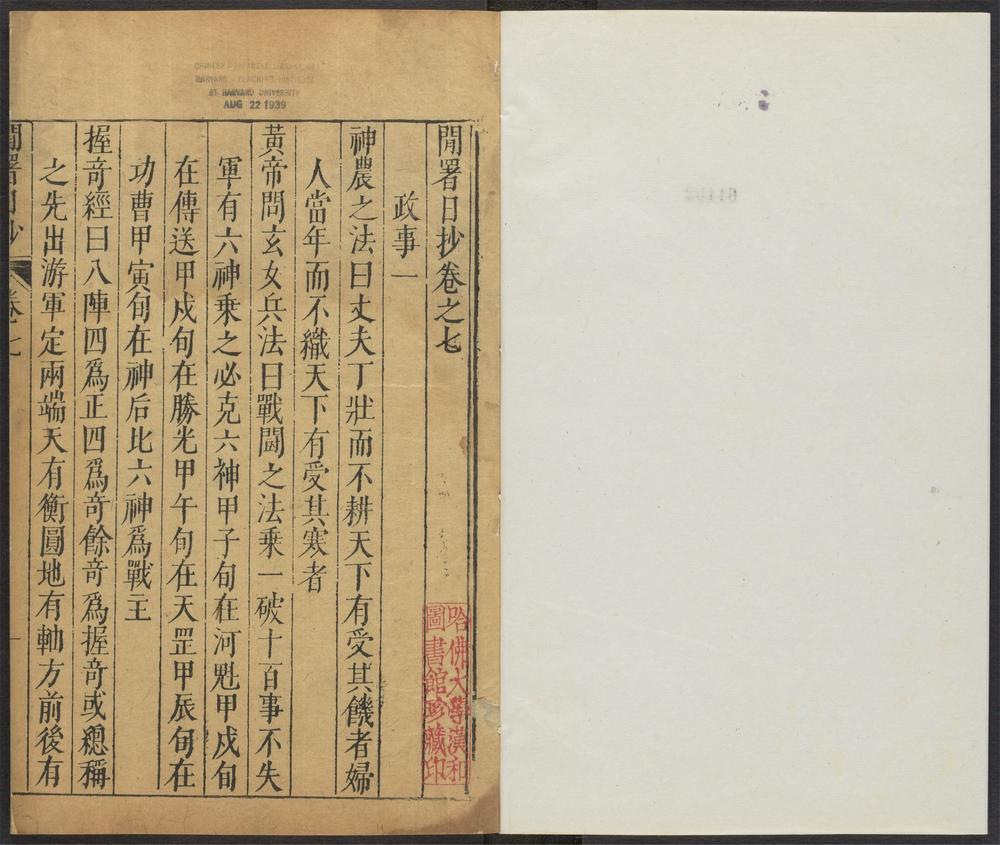 閒署日抄卷之七
政事一
神農之法曰丈夫丁壯而不耕天下有受其饑者婦
人當年而不織天下有受其寒者
黃帝問玄女兵法曰戰鬬之法乘一破十百事不失
軍有六神乘之必克六神甲子旬在河魁甲戍旬
在傳送甲戍旬在勝光甲午旬在天罡甲辰旬在
功曹甲寅旬在神后比六神爲戰主
握奇經曰八陣四爲正四爲奇餘奇爲握奇或總稱
之先出游軍定兩端天有衡圓地有軸方前後有
閒署日抄
卷七
哈佛大學漢和
圖書館珍藏印
HARVARD
AT HARVARD UNIVERSITY
AUG 22 1939